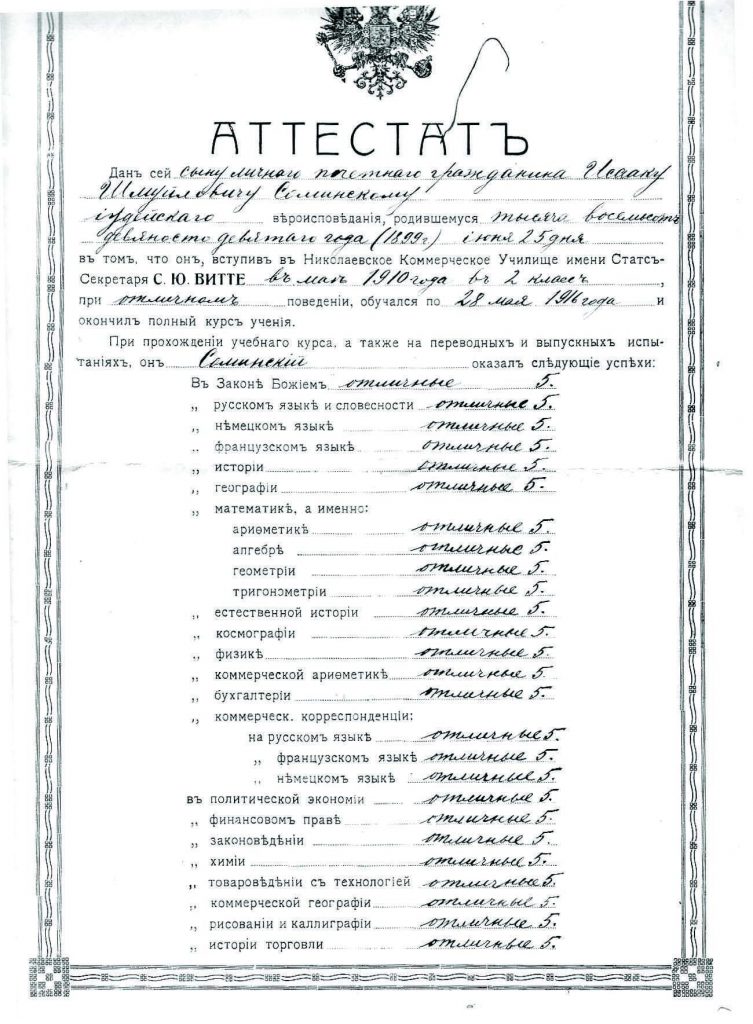 АТТЕСТАТЪ
Данъ сей сыну личнаго почетнаго гражданина Исааку
Шмуйловичу Соминскому
іудейскаго вѣроисповѣданія, родившемуся тысяча восемьсотъ
девяносто девятаго года (1899г) іюня 25 дня
въ томъ, что онъ, вступив въ Николаевское Коммерческое Училище имени Статсъ-
Секретаря С. Ю. ВИТТЕ въ маѣ 1910 года въ 2 классъ,
при отличномъ поведеніи, обучался по 28 мая 1916 года и
окончил полный курс ученія.
При прохожденіи учебнаго курса, а также на переводныхъ и выпускных испы-
таніяхъ, онъ Соминскій оказал слѣдующіе успѣхи:
Въ Законѣ Божіемъ отличные 5.
„ русском языкѣ и словесности отличные 5.
„ нѣмецком языкѣ отличные 5.
„ французском языкѣ отличные 5.
„ исторіи отличные 5.
„ географіи отличные 5.
„ математикѣ, а именно:
ариѳметикѣ отличные 5.
алгебрѣ отличные 5.
геометріи отличные 5.
тригонометріи отличные 5.
„ естественной исторіи отличные 5.
„ космографіи отличные 5.
„ физикѣ отличные 5.
„ коммерческой ариѳметикѣ отличные 5.
„ бухгалтеріи отличные 5.
„ коммерческ. корреспонденціи:
на русском языкѣ отличные 5.
„ французскомъ языкѣ отличные 5.
„ нѣмецком языкѣ отличные 5.
въ политической экономіи отличные 5.
„ финансовом правѣ отличные 5.
„ законовѣдѣніи отличные 5.
„ химіи отличные 5.
„ товаровѣдѣніи съ технологіей отличные 5.
„ коммерческой географіи отличные 5.
„ рисованіи и каллиграфіи отличные 5.
„ исторіи торговли отличные 5.